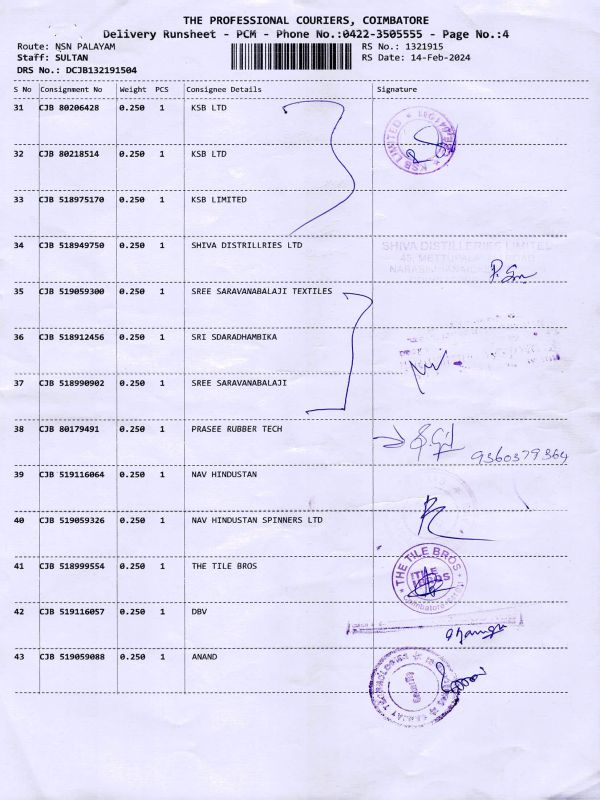 THE PROFESSIONAL COURIERS, COIMBATORE
Delivery Runsheet - PCM - Phone No.:0422-3505555 - Page No.:4
Route: NSN PALAYAM RS No.: 1321915
Staff: SULTAN RS Date: 14-Feb-2024
DRS No.: DCJB132191504
S No Consignment No Weight PCS Consignee Details Signature
31 CJB 80206428 0.250 1 KSB LTD
KSB LIMITED
32 CJB 80218514 0.250 1 KSB LTD
33 CJB 518975170 0.250 1 KSB LIMITED
34 CJB 518949750 0.250 1 SHIVA DISTRILLRIES LTD
SHIVA DISTILLERIES LIMITED
45, METTUPALAYAM ROAD
35 CJB 519059300 0.250 1 SREE SARAVANABALAJI TEXTILES
36 CJB 518912456 0.250 1 SRI SDARADHAMBIKA
37 CJB 518990902 0.250 1 SREE SARAVANABALAJI
38 CJB 80179491 0.250 1 PRASEE RUBBER TECH
9360379364
39 CJB 519116064 0.250 1 NAV HINDUSTAN
40 CJB 519059326 0.250 1 NAV HINDUSTAN SPINNERS LTD
41 CJB 518999554 0.250 1 THE TILE BROS
THE TILE BROS
TILE
BROS
Coimbatore
42 CJB 519116057 0.250 1 DBV
43 CJB 519059088 0.250 1 ANAND
TECHNOLOGIES
Security